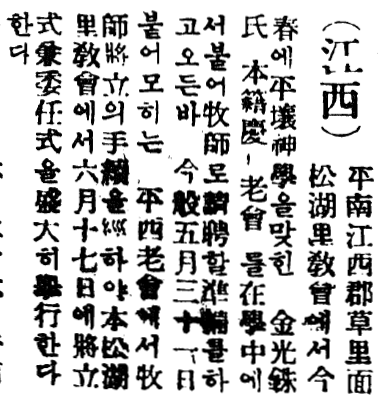 (江西)
平南江西郡草里面
松湖里敎會에서今
春에平壤神學을맞힌 金光鉄
氏 本籍慶ㅣ老會 틀在學中에
서붙어牧師로請聘할準備를하
고오든바 今般五月三十一日
붙어모히는 平西老會에서牧
師將立의手續을經하야本松湖
里敎會에서六月十七日에將立
式兼委任式을盛大히擧行한다
한다